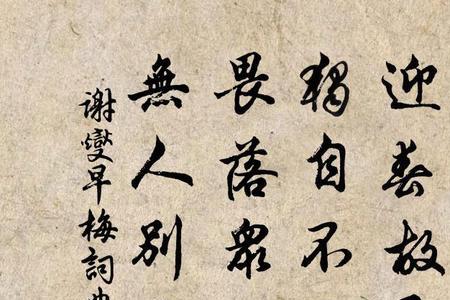 迎春故
獨自不
畏落衆
無人別
謝燮早梅詞